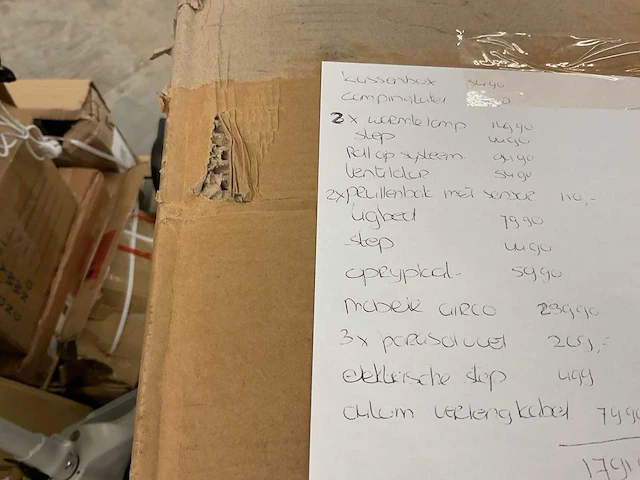 kussenbox 54,90
campingkoker
2x warmtelamp 149,90
step 44,90
Roll op systeem
Ventilator 54,90
2x pedillenbak met sensor 110,-
ligbed 79,90
step 44,90
59,90
mobiele airco 239,90
3x parasolvoet 209,-
elektrische step 499
verlengkabel 79,90
1791